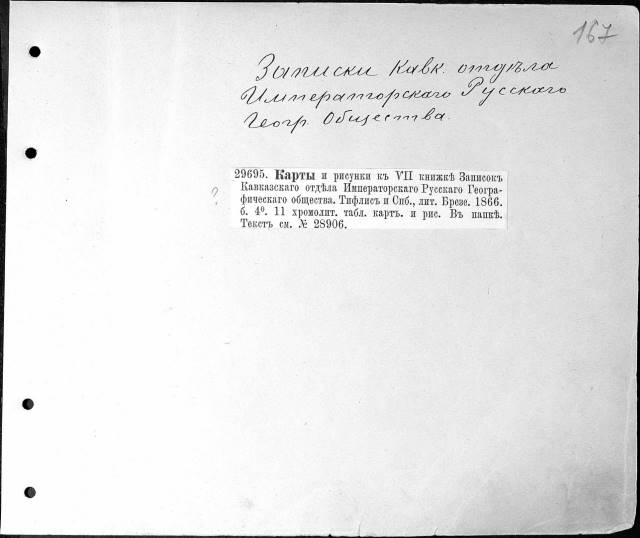 167
Записки Кавк. отдѣла
Императорскаго Русскаго
Геогр. Общества.
29695. Карты и рисунки къ VII книжкѣ Записокъ
Кавказскаго отдѣла Императорскаго Русскаго Геогра-
фическаго общества. Тифлисъ и Спб., лит. Брезе. 1866.
б. 4⁰. 11 хромолит. табл. картъ. и рис. Въ папкѣ.
Текстъ см. № 28906.
?